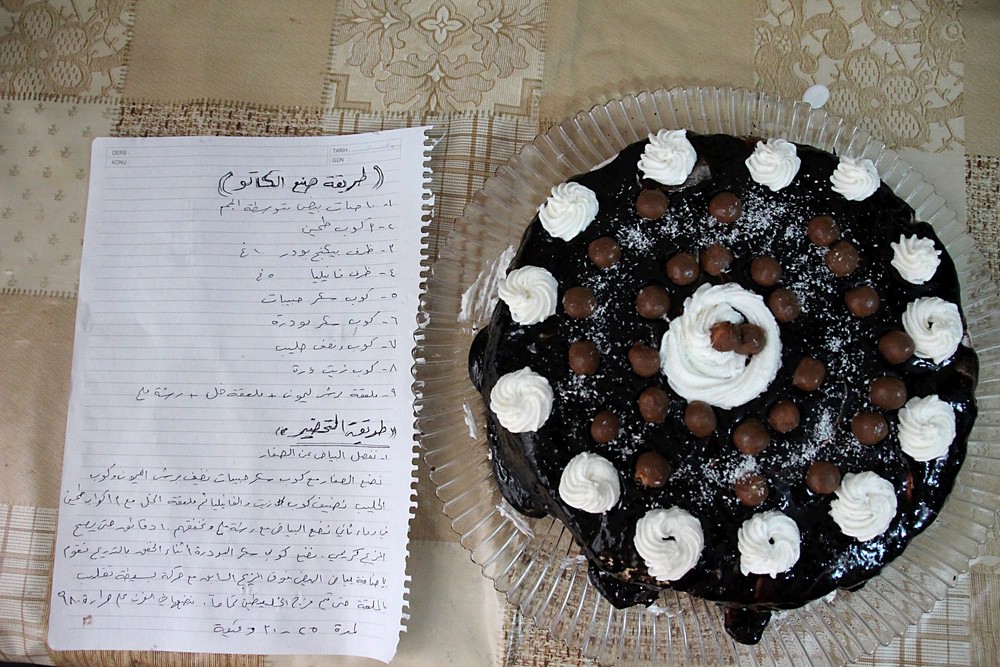 DERS
KONU
TARİH
GÜN
((طريقة صنع الكاتو))
١- ٦ حبات بيض متوسطة الحجم
٢- ٣ كوب طحين
٣- ظرف بيكنج بودر ١٠غ
٤- ظرف فانيليا ٥غ
٥- كوب سكر حبيبات
٦- كوب سكر بودرة
٧- كوب ونصف حليب
٨- كوب زيت ذرة
٩- ملعقة برش ليمون + ملعقة خل + رشة ملح
((طريقة التحضير))
١- نفصل البياض عن الصفار
نضع الصفار مع كوب سكر حبيبات نضيف برش الليمون وكوب
الحليب نضيف كوب زيت والفانيليا ثم ملعقة الخل مع ٣ أكواب طحين
في وعاء ثاني نضع البياض مع رشة ملح ونخفقهم ١٠ دقائق حتى يصبح
المزيج كريمي، نضع كوب سكر البودرة أثناء الخفق بالتدريج نقوم
باضافة بياض البيض فوق المزيج السابق مع حركة بسيطة تقليب
بالملعقة حتى يتم مزج الخليطين تماماً. نضعها في الفرن على حرارة ١٨٠
لمدة ٢٥ - ٣٠ دقيقة